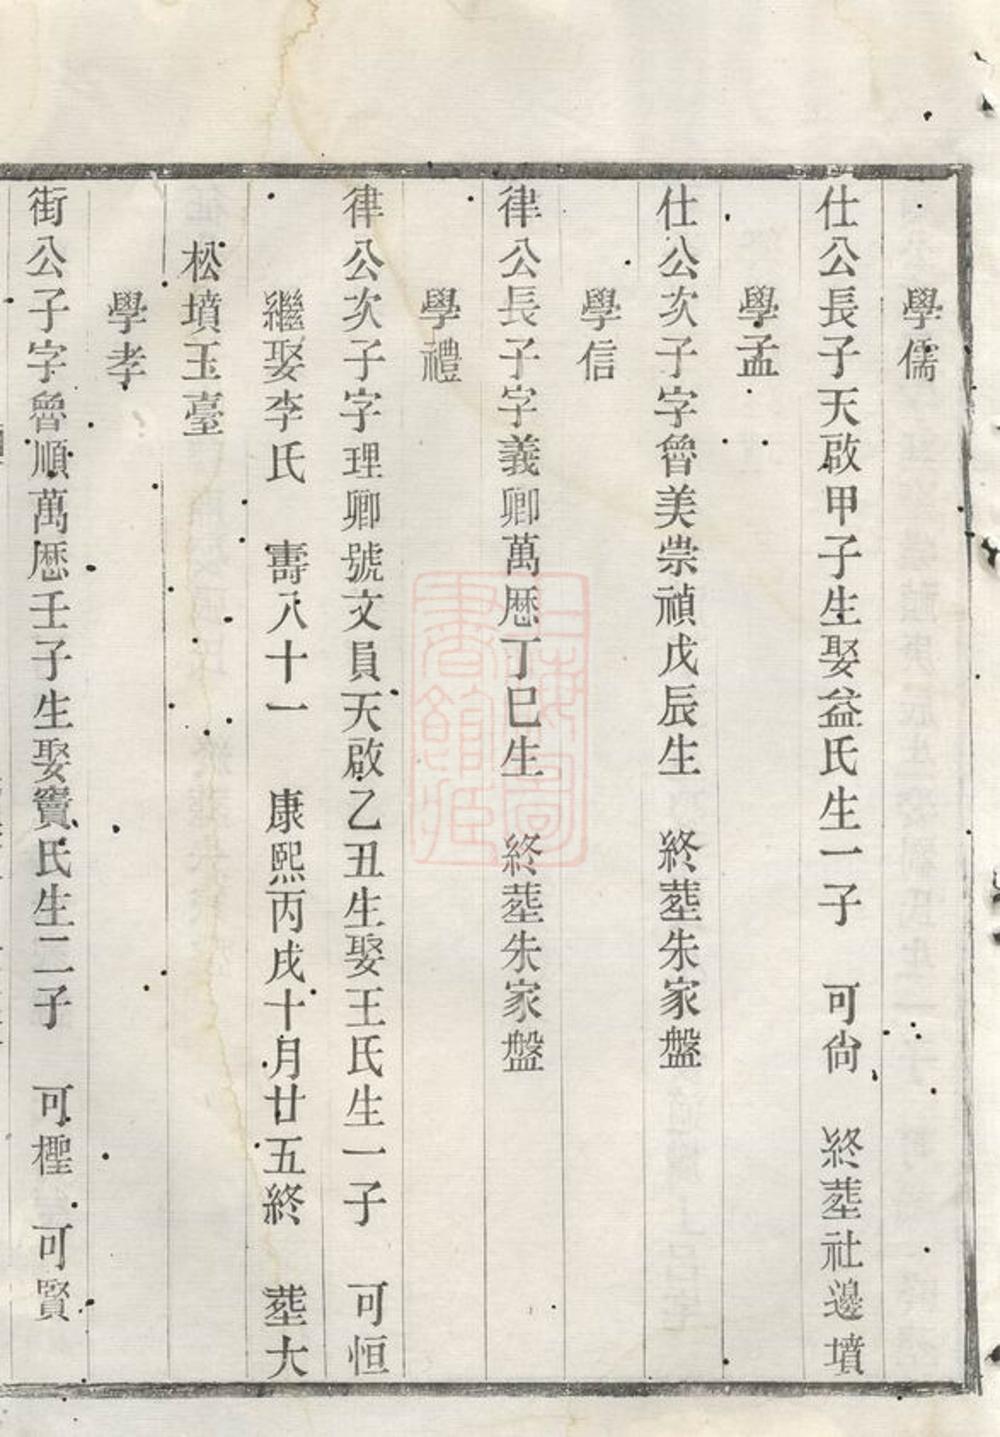 學儒
仕公長子天啟甲子生娶益氏生一子　可尙　終塟社邊墳
學孟
仕公次子字魯美崇禎戊辰生　終塟朱家盤
學信
律公長子字義卿萬歷丁巳生　終塟朱家盤
學禮
律公次子字理卿號文員天啟乙丑生娶王氏生一子　可恒
繼娶李氏　壽八十一　康熙丙戌十月廿五終　塟大
松墳玉臺
學孝
街公子字魯順萬歷壬子生娶竇氏生二子　可檉　可賢
上海圖書館藏